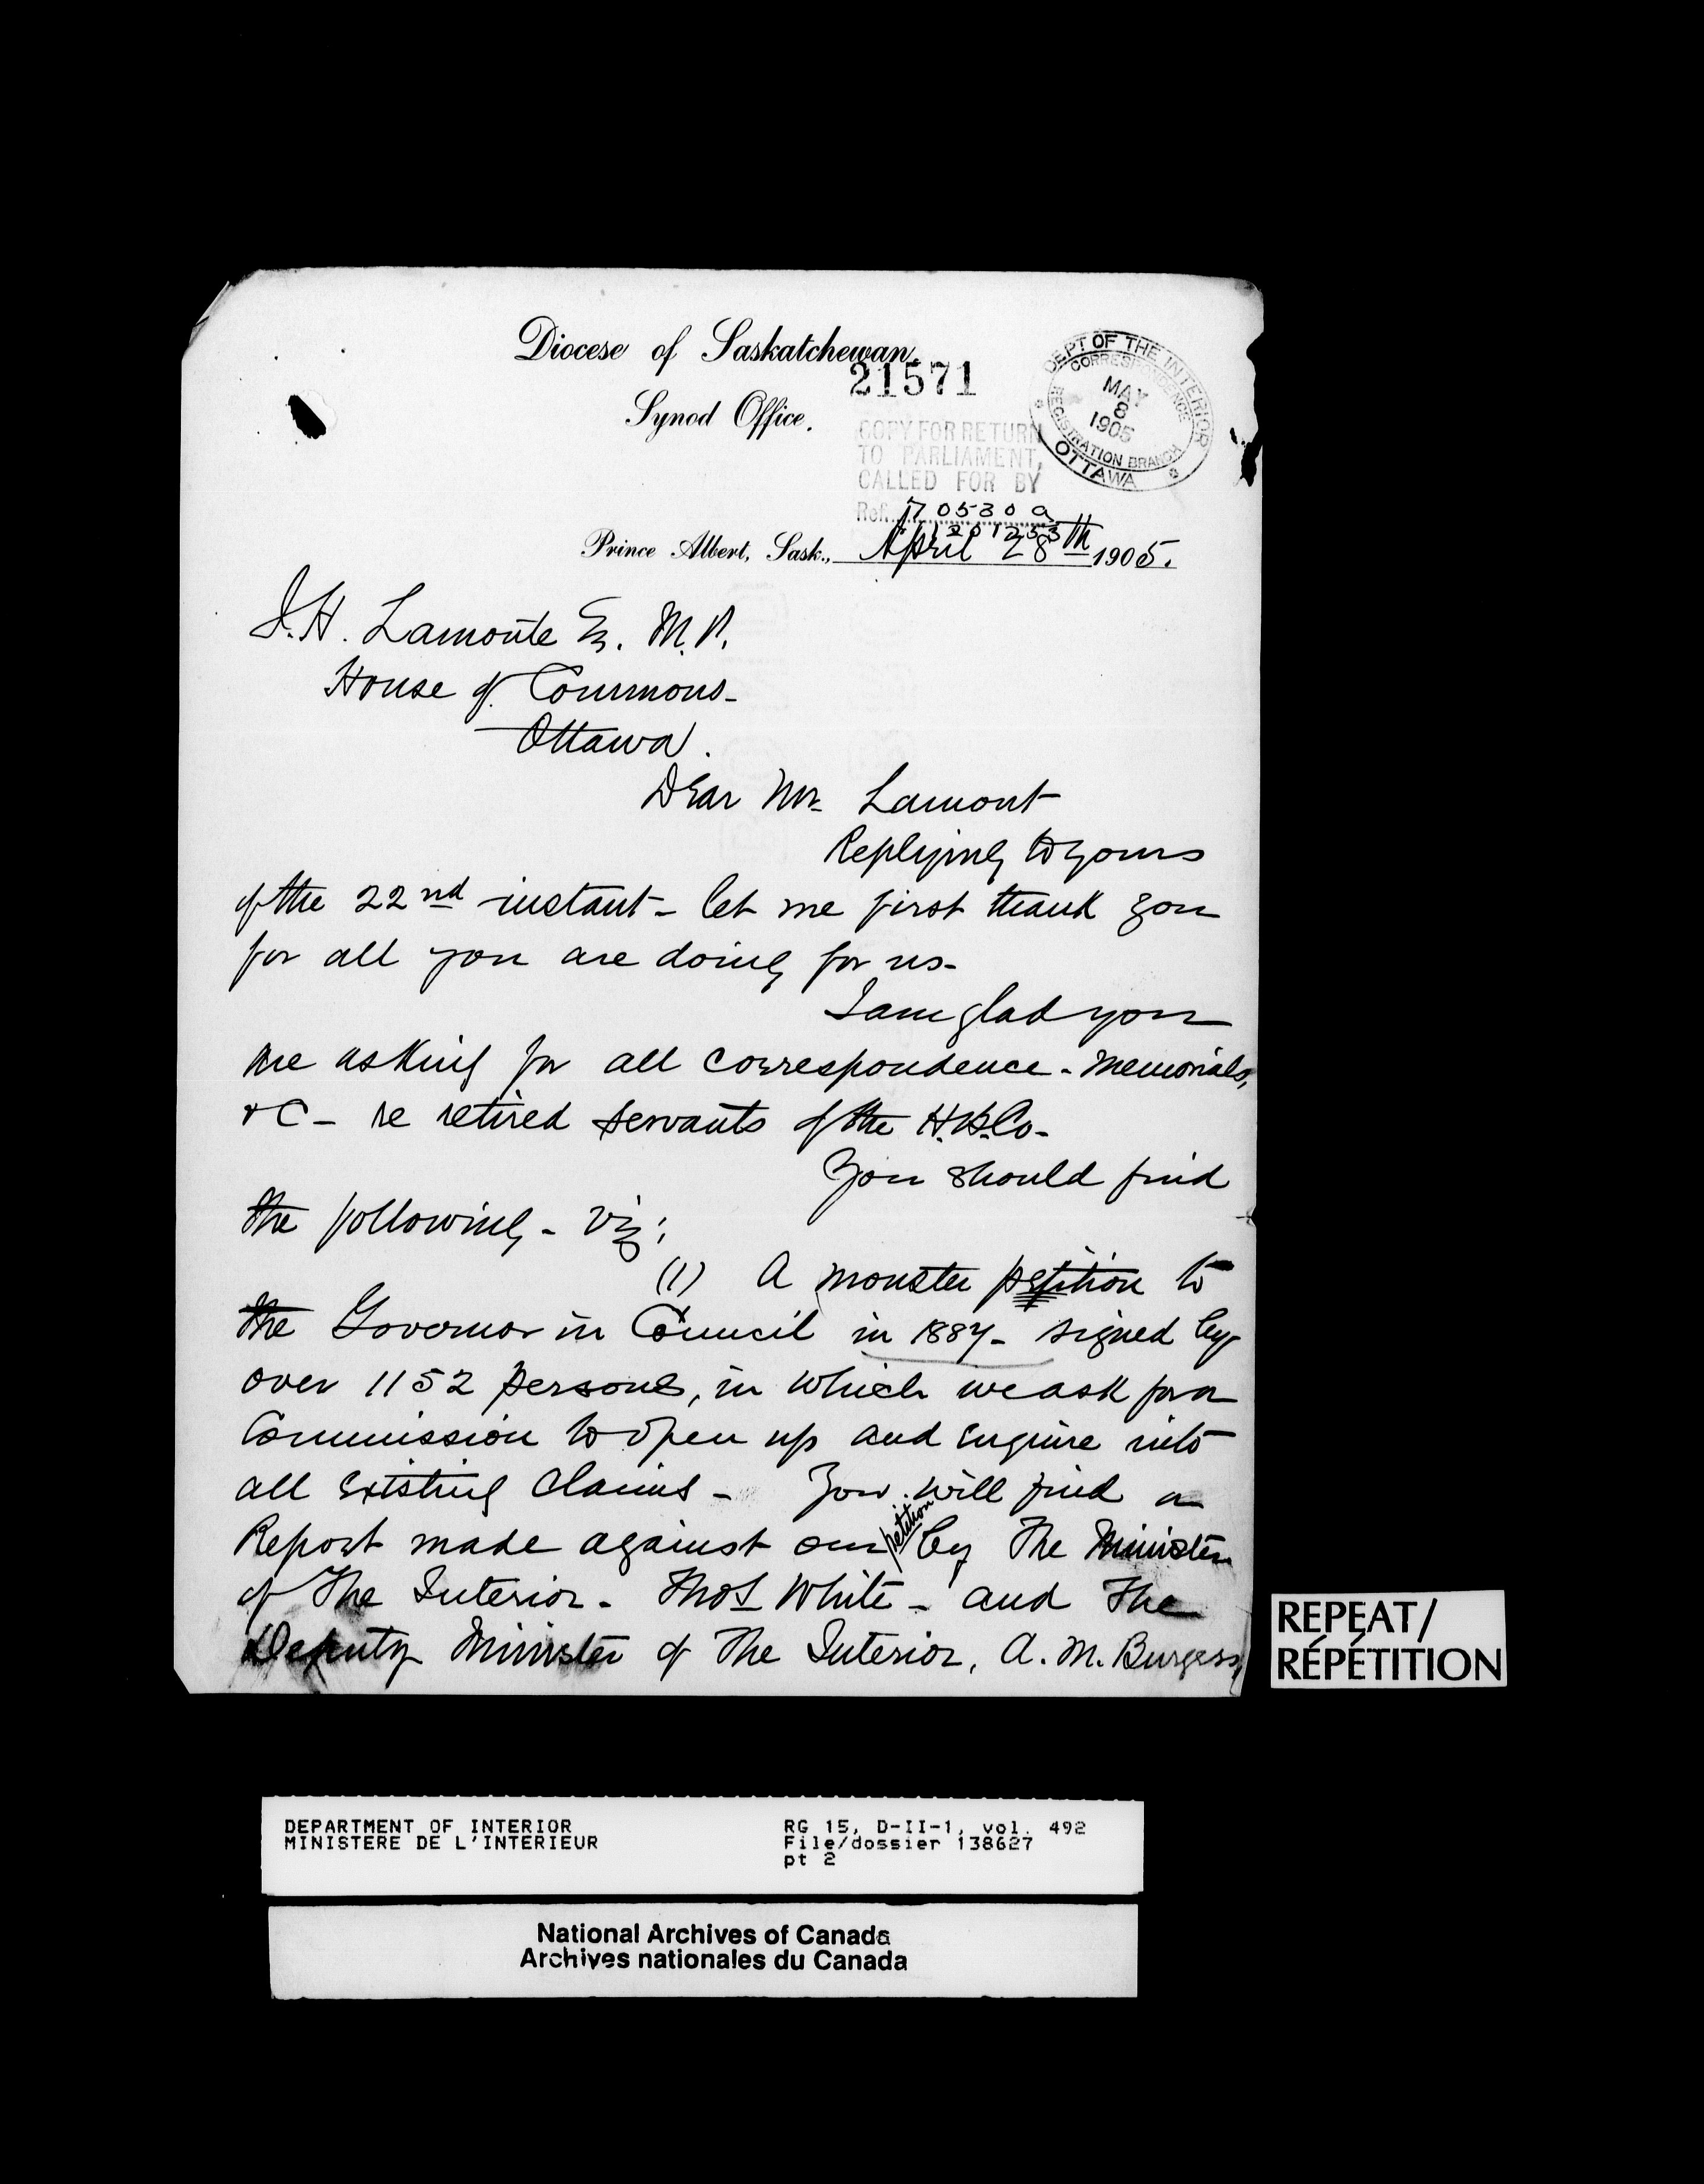 Diocese of Saskatchewan.
21571
Synod Office.
DEPT OF THE INTERIOR
CORRESPONDENCE
MAY
8
1905
REGISTRATION BRANCH
OTTAWA
COPY FOR RETURN
TO PARLIAMENT,
CALLED FOR BY
Ref. 705309
1201253
Prince Albert, Sask., April 28th 1905.
J. H. Lamonte Es. M.P.
House of Commons-
Ottawa.
Dear Mr. Lamont
Replying to yours
of the 22nd instant- let me first thank you
for all you are doing for us-
I am glad you
are asking for all correspondence - memorials,
&C - re retired servants of the H.B.Co-
You should find
the following - viz;
(1) A monster petition to
the Governor in Council in 1887- signed by
over 1152 persons, in which we ask for a
Commission to open up and enquire into
all existing claims - You will find a
petition
Report made against our by The Minister
of The Interior. Thos White - and The
Deputy Minister of The Interior, A. M. Burgess,
REPEAT/
RÉPÉTITION
DEPARTMENT OF INTERIOR RG 15, D-II-1, vol. 492
MINISTERE DE L'INTERIEUR File/dossier 138627
pt 2
National Archives of Canada
Archives nationales du Canada